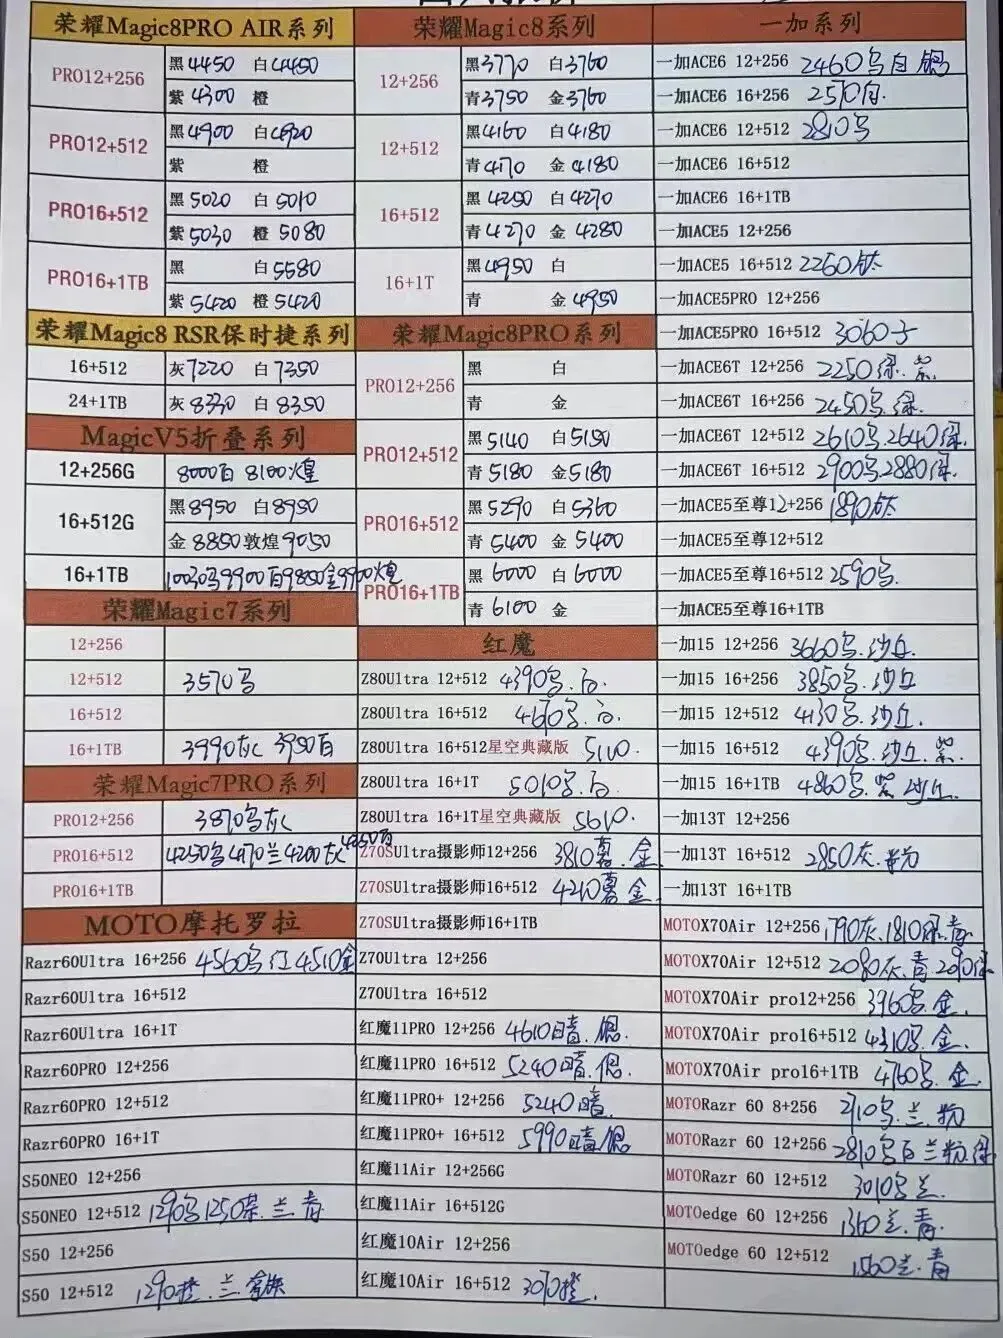 荣耀Magic8PRO AIR系列
PRO12+256 黑4450 白4450
紫4300 橙
PRO12+512 黑4900 白4920
紫 橙
PRO16+512 黑5020 白5010
紫5030 橙5080
PRO16+1TB 黑 白5580
紫5420 橙5420
荣耀Magic8 RSR保时捷系列
16+512 灰7220 白7350
24+1TB 灰8330 白8350
MagicV5折叠系列
12+256G 8000白 8100煌
16+512G 黑8950 白8950
金8850敦煌9050
16+1TB 10030乌9900白9850金9900煌
荣耀Magic7系列
12+256
12+512 3570乌
16+512
16+1TB 3990灰 3950白
荣耀Magic7PRO系列
PRO12+256 3870乌灰
PRO16+512 4250乌4170兰4200灰4250白
PRO16+1TB
MOTO摩托罗拉
Razr60Ultra 16+256 4560乌红4510金
Razr60Ultra 16+512
Razr60Ultra 16+1T
Razr60PRO 12+256
Razr60PRO 12+512
Razr60PRO 16+1T
S50NEO 12+256
S50NEO 12+512 1290乌1250茶.兰.青
S50 12+256
S50 12+512 1290橙.兰
荣耀Magic8系列
12+256 黑3770 白3760
青3750 金3760
12+512 黑4160 白4180
青4170 金4180
16+512 黑4250 白4270
青4270 金4280
16+1T 黑4950 白
青 金4950
荣耀Magic8PRO系列
PRO12+256 黑 白
青 金
PRO12+512 黑5140 白5150
青5180 金5180
PRO16+512 黑5290 白5360
青5400 金5400
PRO16+1TB 黑6000 白6000
青6100 金
红魔
Z80Ultra 12+512 4390乌.白.
Z80Ultra 16+512 4670乌.白.
Z80Ultra 16+512星空典藏版 5110.
Z80Ultra 16+1T 5010乌.白.
Z80Ultra 16+1T星空典藏版 5610.
Z70SUltra摄影师12+256 3810暮.金
Z70SUltra摄影师16+512 4210暮金
Z70SUltra摄影师16+1TB
Z70Ultra 12+256
Z70Ultra 16+512
红魔11PRO 12+256 4610暗.银.
红魔11PRO 16+512 5240暗.银.
红魔11PRO+ 12+256 5240暗.
红魔11PRO+ 16+512 5990暗银.
红魔11Air 12+256G
红魔11Air 16+512G
红魔10Air 12+256
红魔10Air 16+512 3070橙.
一加系列
一加ACE6 12+256 2460乌白.银
一加ACE6 16+256 2570白.
一加ACE6 12+512 2810乌
一加ACE6 16+512
一加ACE6 16+1TB
一加ACE5 12+256
一加ACE5 16+512 2260钛
一加ACE5PRO 12+256
一加ACE5PRO 16+512 3060子
一加ACE6T 12+256 2250绿.紫.
一加ACE6T 16+256 2450乌.绿.
一加ACE6T 12+512 2610乌.2640绿.
一加ACE6T 16+512 2900乌.2880绿.
一加ACE5至尊12+256 1890钛
一加ACE5至尊12+512
一加ACE5至尊16+512 2590乌.
一加ACE5至尊16+1TB
一加15 12+256 3660乌.沙丘.
一加15 16+256 3850乌.沙丘
一加15 12+512 4130乌.沙丘.
一加15 16+512 4390乌.沙丘.紫.
一加15 16+1TB 4860乌.紫 沙丘.
一加13T 12+256
一加13T 16+512 2850灰.粉
一加13T 16+1TB
MOTOX70Air 12+256 1790灰.1810绿.青
MOTOX70Air 12+512 2080灰.青2090绿
MOTOX70Air pro12+256 3960乌.金.
MOTOX70Air pro16+512 4310乌.金.
MOTOX70Air pro16+1TB 4760乌.金.
MOTORazr 60 8+256 2710乌.兰.粉
MOTORazr 60 12+256 2810乌白兰粉.绿
MOTORazr 60 12+512 3010乌兰.
MOTOedge 60 12+256 1360兰.青.
MOTOedge 60 12+512 1560兰.青